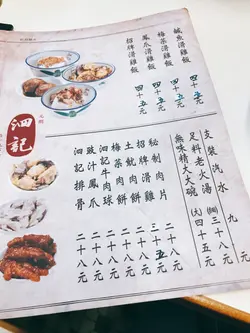 鹹魚滑雞飯 四十五元
梅菜滑雞飯 四十五元
鳳爪滑雞飯 四十五元
招牌滑雞飯 四十五元
泗記
支裝汽水 九元
足料老火湯
無味精大大碗 四十五元
秘制肉片 二十八元
招牌滑雞 三十五元
土魷肉餅 二十八元
梅菜肉餅 二十八元
牛肉球 二十八元
豉汁鳳爪 二十八元
泗記排骨 二十八元